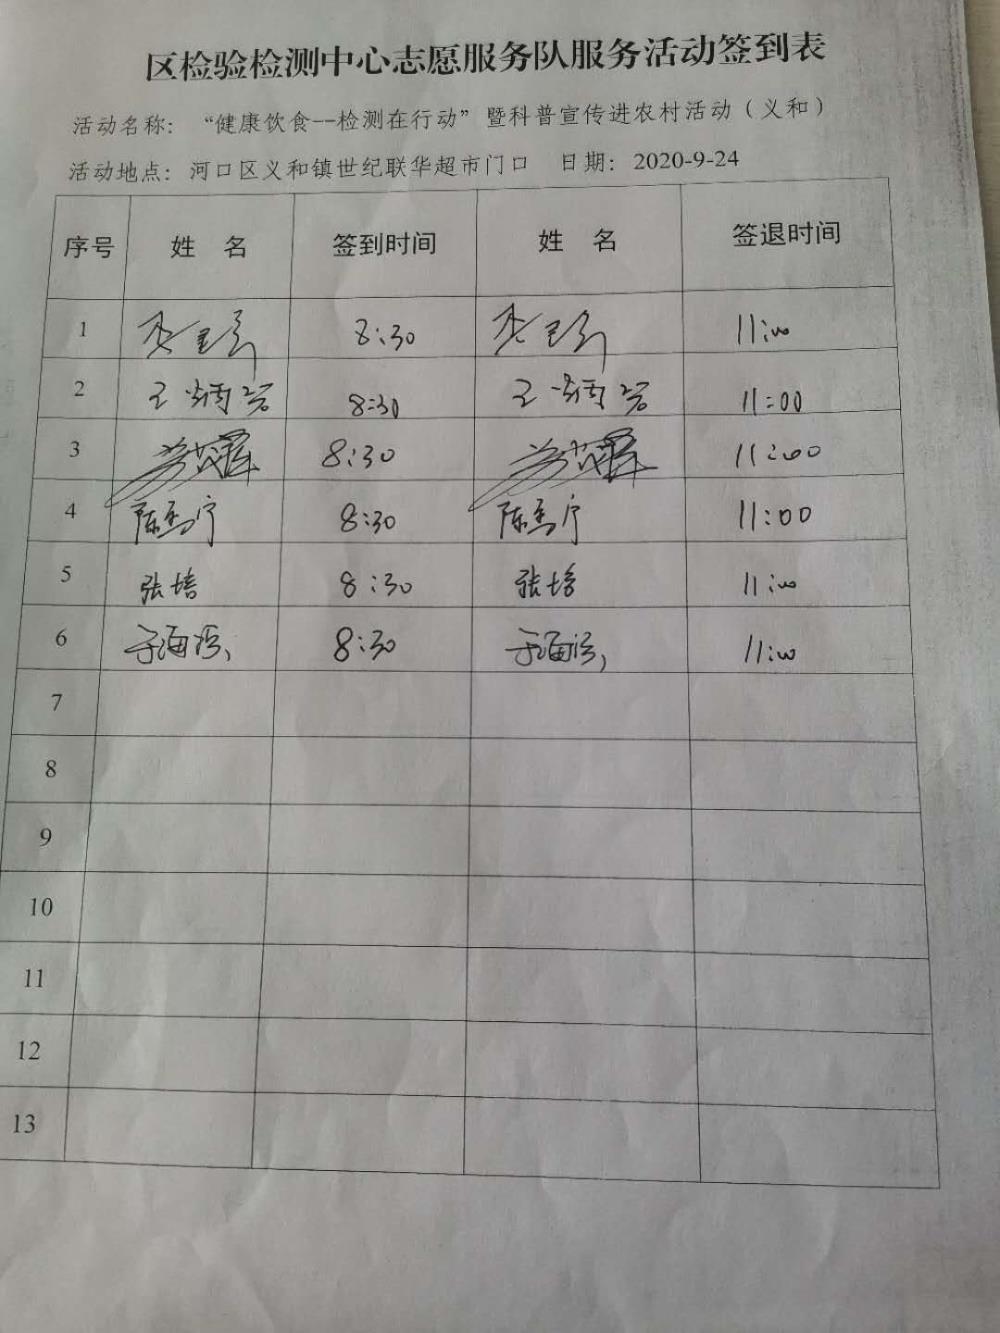 区检验检测中心志愿服务队服务活动签到表
活动名称：“健康饮食--检测在行动”暨科普宣传进农村活动（义和）
活动地点：河口区义和镇世纪联华超市门口 日期：2020-9-24
序号 姓 名 签到时间 姓 名 签退时间
1 8:30 11:00
2 王炳岩 8:30 王炳岩 11:00
3 8:30 11:00
4 陈 宁 8:30 陈 宁 11:00
5 张培 8:30 张培 11:00
6 于海 8:30 于海 11:00
7
8
9
10
11
12
13